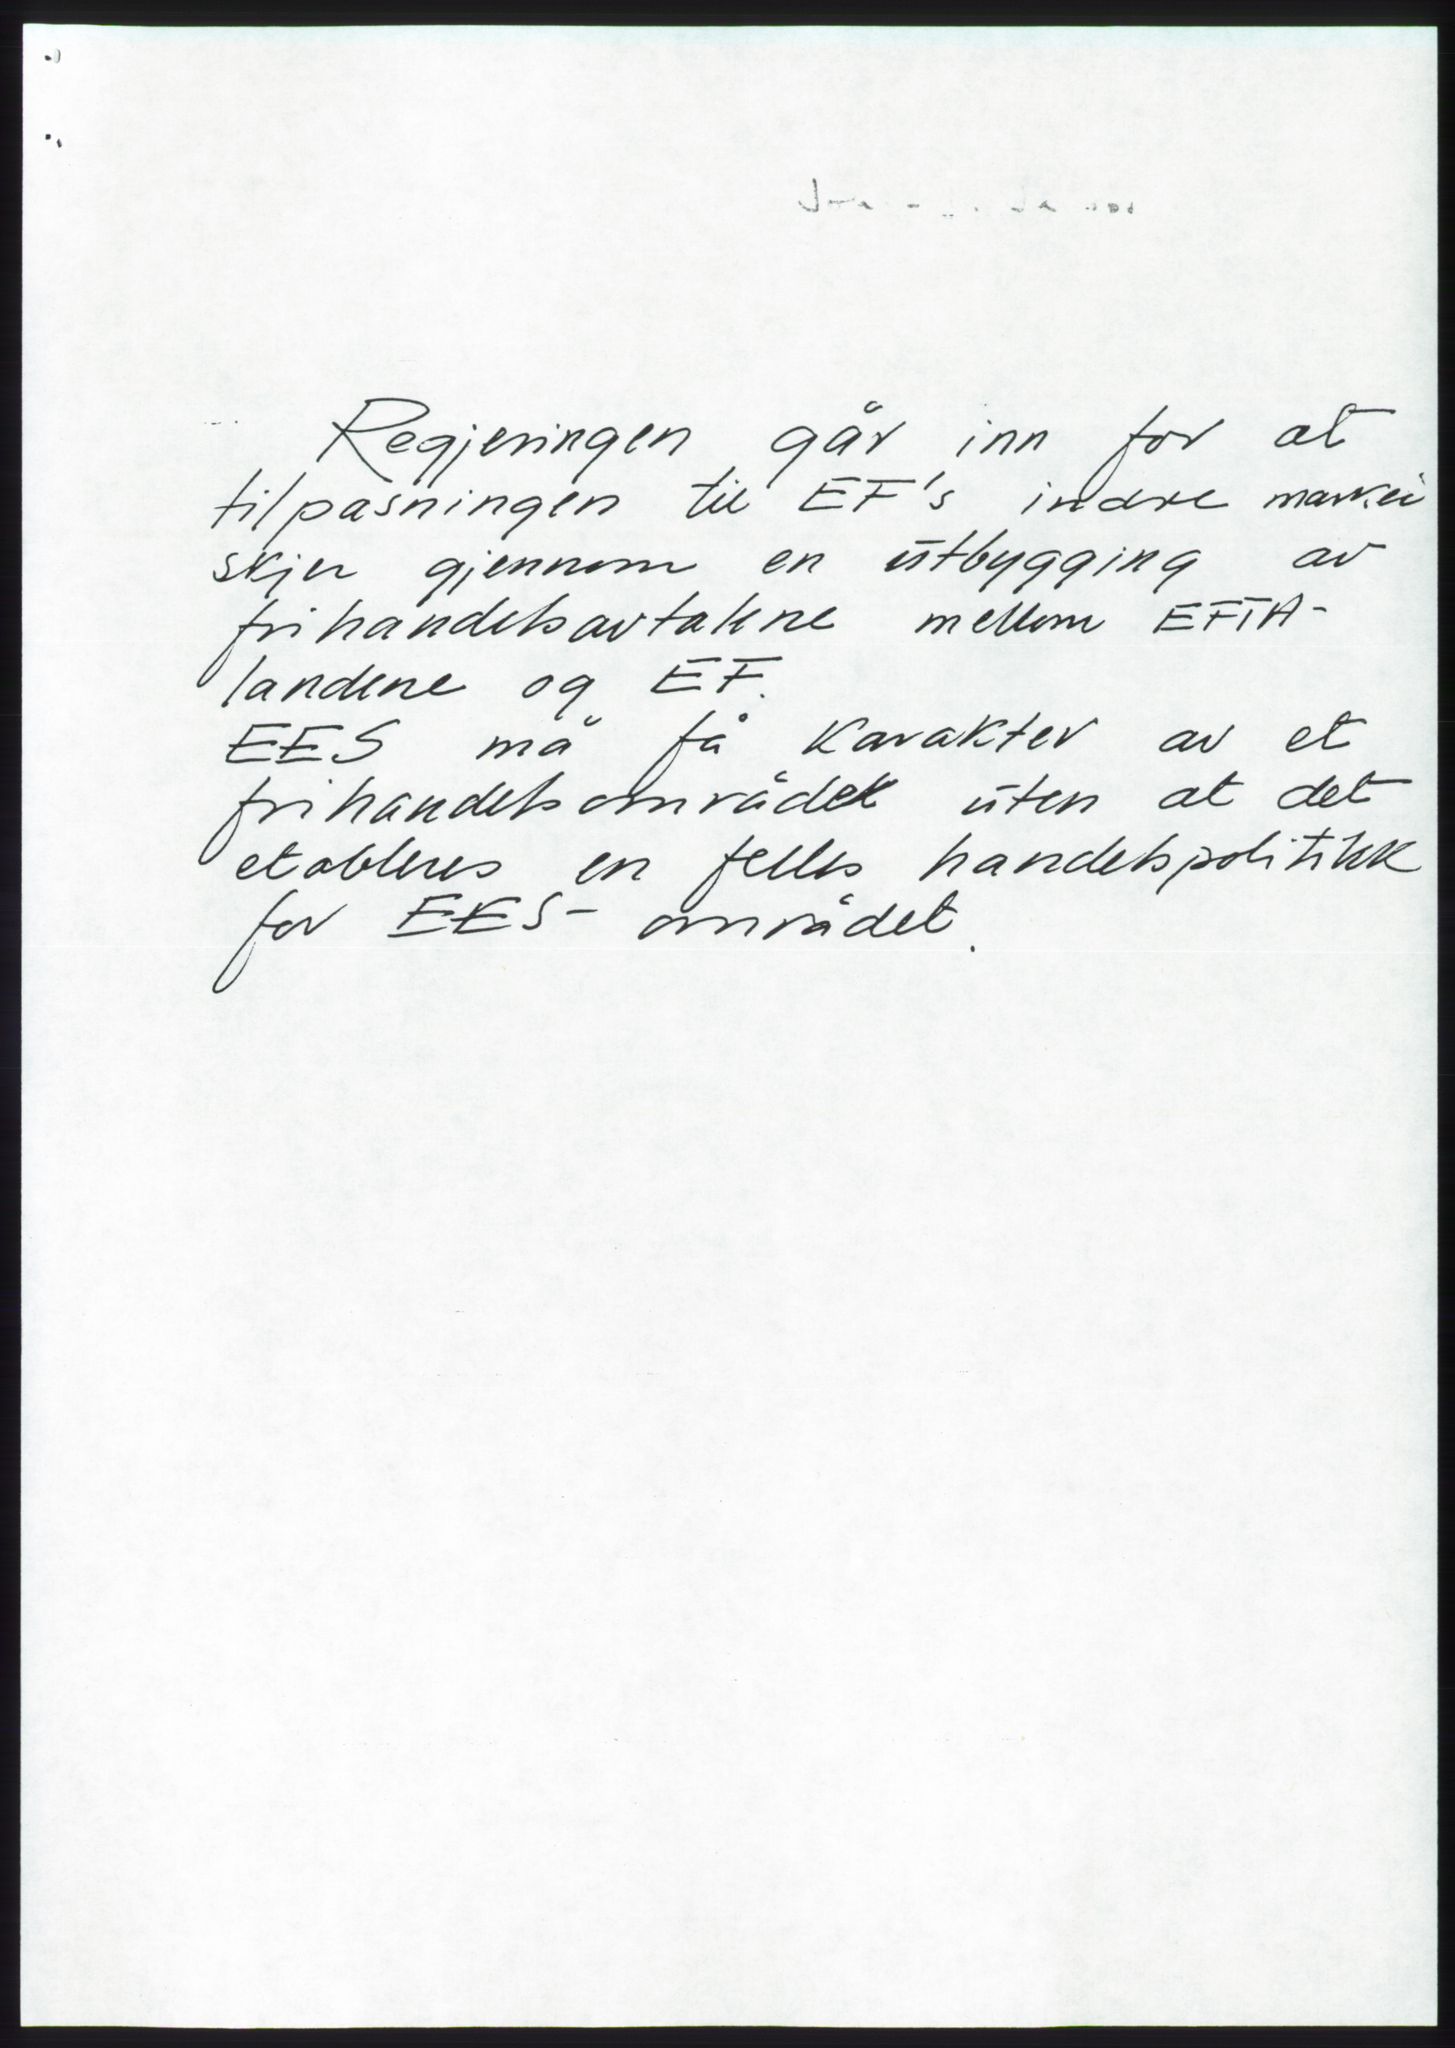 Regjeringen går inn for at
tilpasningen til EF's indre marked
skjer gjennom en utbygging av
frihandelsavtalene mellom EFTA-
landene og EF.
EES må få karakter av et
frihandelsområde uten at det
etableres en felles handelspolitikk
for EES- området.